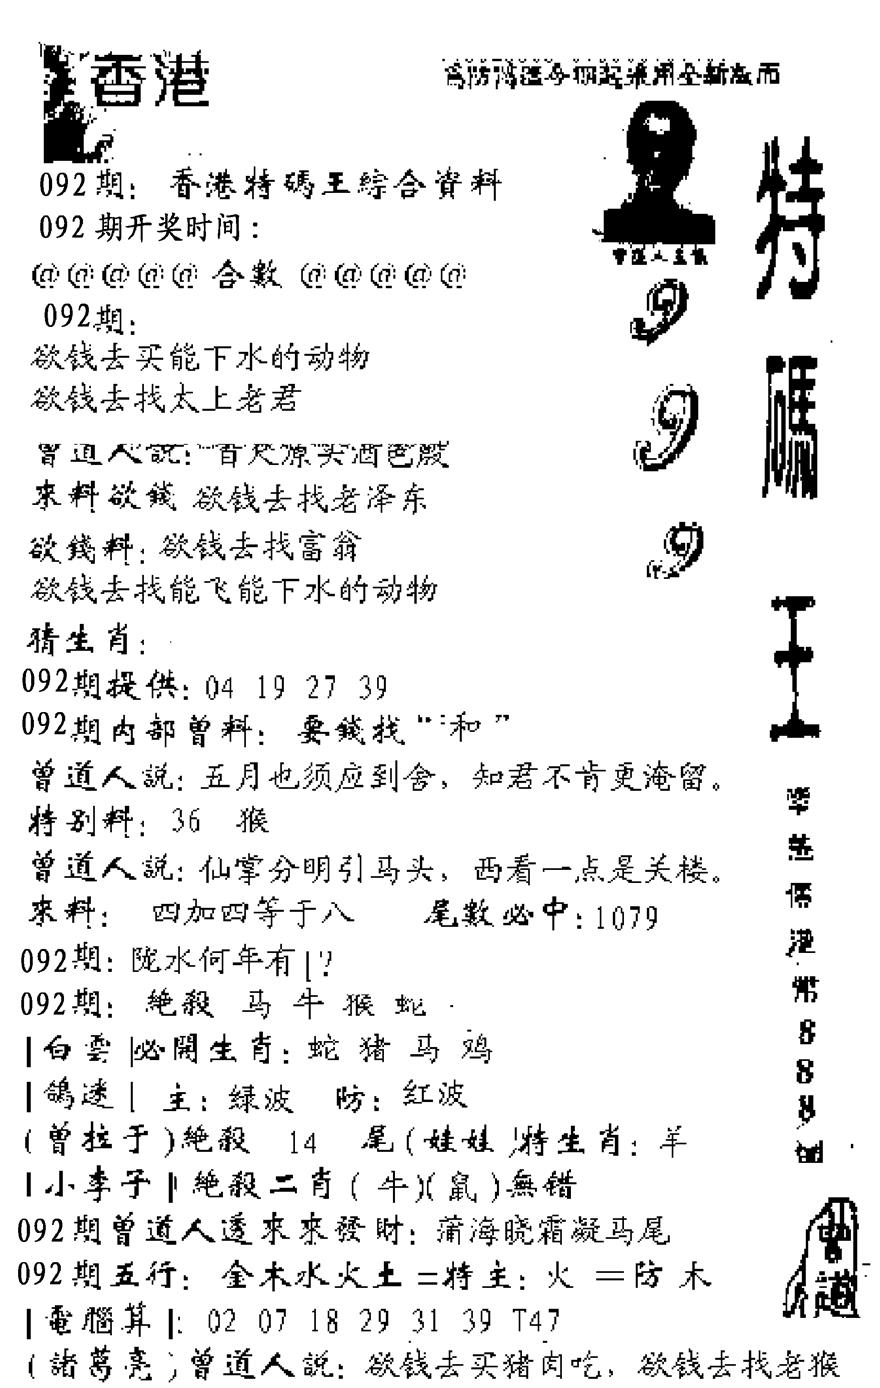 香港
092期：香港特碼王綜合資料
092期开奖时间：
@@@@@合數@@@@@
092期：
欲钱去买能下水的动物
欲钱去找太上老君
曾道人說：
來料欲錢 欲钱去找老泽东
欲錢料：欲钱去找富翁
欲钱去找能飞能下水的动物
猜生肖：
092期提供：04 19 27 39
092期内部曾料：要錢找“和”
曾道人說：五月也须应到舍，知君不肯更淹留。
特别料：36 猴
曾道人說：仙掌分明引马头，西看一点是关楼。
來料：四加四等于八 尾數必中：1079
092期：陇水何年有|?
092期：絶殺 马 牛 猴 蛇
|白雲|必開生肖：蛇 猪 马 鸡
|鴿迷| 主：绿波 防：红波
(曾拉于)絶殺 14 尾(娃娃)特生肖：羊
|小李子|絶殺二肖(牛)(鼠)無错
092期曾道人透來來發財：蒲海晓霜凝马尾
092期五行：金木水火土=特主：火 =防 木
|電腦算|：02 07 18 29 31 39 T47
(諸葛亮)曾道人說：欲钱去买猪肉吃，欲钱去找老猴
特碼王
999
888
曾道